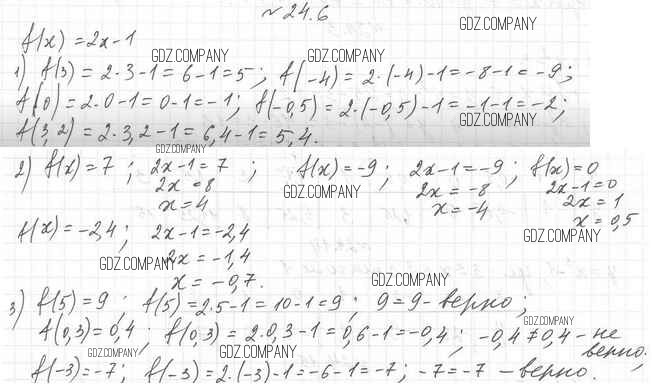 № 24.6
GDZ.COMPANY
f(x) = 2x-1
GDZ.COMPANY GDZ.COMPANY
1) f(3) = 2·3-1 = 6-1 = 5; f(-4) = 2·(-4)-1 = -8-1 = -9;
f(0) = 2·0-1 = 0-1 = -1; f(-0,5) = 2·(-0,5)-1 = -1-1 = -2;
GDZ.COMPANY
f(3,2) = 2·3,2-1 = 6,4-1 = 5,4.
GDZ.COMPANY
2) f(x) = 7; 2x-1 = 7; f(x) = -9; 2x-1 = -9; f(x) = 0
2x = 8 2x = -8 2x-1 = 0
GDZ.COMPANY
x = 4 x = -4 2x = 1
x = 0,5
f(x) = -2,4; 2x-1 = -2,4
GDZ.COMPANY
2x = -1,4
GDZ.COMPANY
x = -0,7.
GDZ.COMPANY
3) f(5) = 9; f(5) = 2·5-1 = 10-1 = 9; 9 = 9 - верно;
GDZ.COMPANY
f(0,3) = 0,4; f(0,3) = 2·0,3-1 = 0,6-1 = -0,4; -0,4 ≠ 0,4 - не
верно;
GDZ.COMPANY GDZ.COMPANY
f(-3) = -7; f(-3) = 2·(-3)-1 = -6-1 = -7; -7 = -7 - верно.